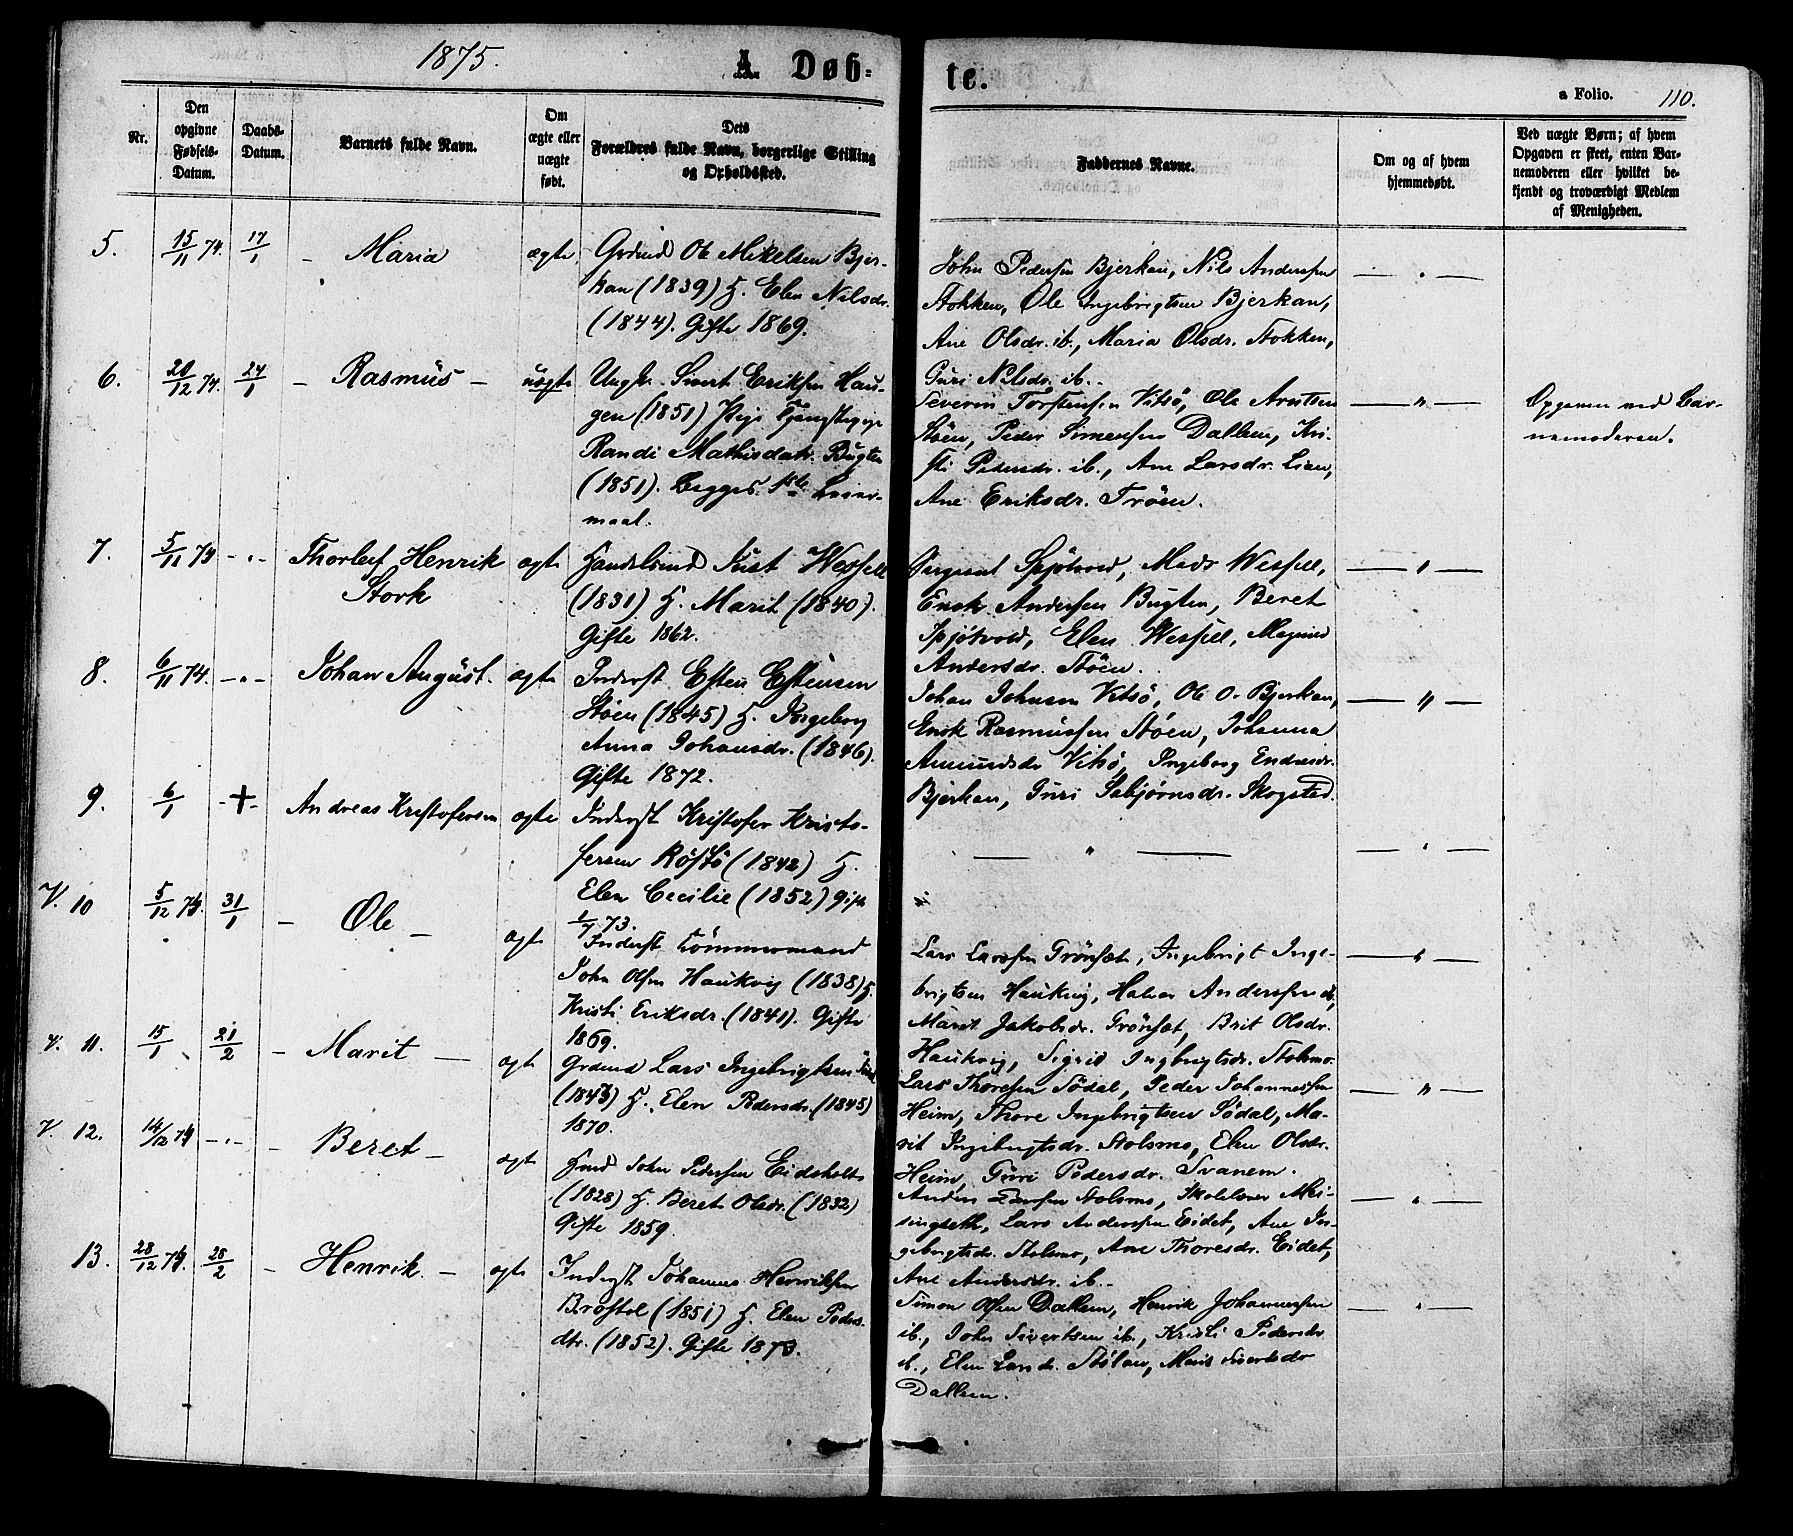 1875.
A. Døb-
te.
a Folio. 110.
Nr.
Den opgivne Fødsels-Datum.
Daabs-Datum.
Barnets fulde Navn.
Om ægte eller uægte født.
Dets Forældres fulde Navn, borgerlige Stilling og Opholdssted.
Faddernes Navne.
Om og af hvem hjemmedøbt.
Ved uægte Børn; af hvem Opgaven er skeet, enten Barnemoderen eller hvilket bekjendt og troværdigt Medlem af Menigheden.
5. 15/11 74. 17/1 – Maria ægte
Grdmd Ole Mikelsen Bjer-
kan (1839) H. Elen Nilsdr.
(1844). Gifte 1869.
John Pedersen Bjerkan, Nils Anderssen
Stokken, Ole Ingebrigtsen Bjerkan,
Ane Olsdr. ib., Maria Olsdr. Stokken,
Guri Nilsdr. ib.
6. 20/12 74. 24/1 – Rasmus – uægte
Ungk. Sivert Eriksen Hau-
gen (1851) Pige
Randi Mathisdatr. Bugten
(1851). Begges 1ste Leier-
maal.
Severin Torstensen Vitsø, Ole Arntsen
Støen, Peder Simensen Dallem, Kri-
sti Pedersdr. ib., Ane Larsdr. Lien,
Ane Eriksdr. Trøen.
Opgaven ved Bar-
nemoderen.
7. 5/11 74 – " – Thorleif Henrik
Stork
ægte
Handelsmd Just Wessell
(1831) H. Marit (1840).
Gifte 1862.
Sergeant Spjøtvold, Mads Wessell,
Erick Andersen Bugten, Beret
Spjøtvold, Elen Wessell, Magnild
Andersdr. Støen.
8. 6/11 74. – " – Johan August. ægte
Inderst Esten Estensen
Støen (1845) H. Ingeborg
Anna Johansdr. (1846).
Gifte 1872.
Johan Johnsen Vitsø, Ole O. Bjerkan,
Erick Rasmussen Støen, Johanna
Amundsdr Vitsø, Ingeborg Endresdr.
Bjerkan, Guri Esbjørnsdr. Skogsted.
9. 6/1 - + - Andreas Kristofersen ægte
Inderst Kristofer Kristo-
fersen Røstø (1842) H.
Elen Cecilie (1852) gift
1/7 73.
V. 10 5/12 74. 31/1 – Ole – ægte
Inderst Tømmermand
John Olsen Haukvig (1838) H.
Kristi Eriksdr. (1841). Gifte
1869.
Lars Larssen Grønset, Ingebrigt Inge-
brigtsen Haukvig, Halvor Anderssen ib,
Maret Jakobsdr. Grønset, Brit Olsdr.
Haukvig, Sigrid Ingbrigtsdr. Stolsmo.
V. 11. 15/1 21/2 – Marit – ægte
Grdmd Lars Ingebrigtsen
(1843) H. Elen Pedersdr. (1845)
1870.
Lars Thoresen Sødal, Peder Johannessen
Heim, Thore Ingebrigtsen Sødal, Ma-
rit Ingebrigtsdr. Stolsmo, Elen Olsdr.
Heim, Guri Pedersdr. Svanem.
V. 12. 14/12 74 – " – Beret – ægte
Hmd John Pedersen Eidsholt
(1828) H. Beret Olsdr. (1832)
Gifte 1859.
Anders Larsen Stolsmo, Skolelærer Mei-
singseth, Lars Anderssen Eidet, Ane In-
gebrigtsdr. Stolsmo, Ane Thoresdr. Eidet,
Ane Andersdr. ib.
13. 28/12 74. 28/2 – Henrik. – ægte
Inderst Johannes Henriksen
Brøstøl (1851) H. Elen Peders-
dtr. (1852). Gifte 1873.
Simon Olsen Dallem, Henrik Johannessen
ib., John Sivertsen ib., Kristi Pedersdr
ib., Elen Larsdr. Stølan, Marit Sivertsdr
Dallem.